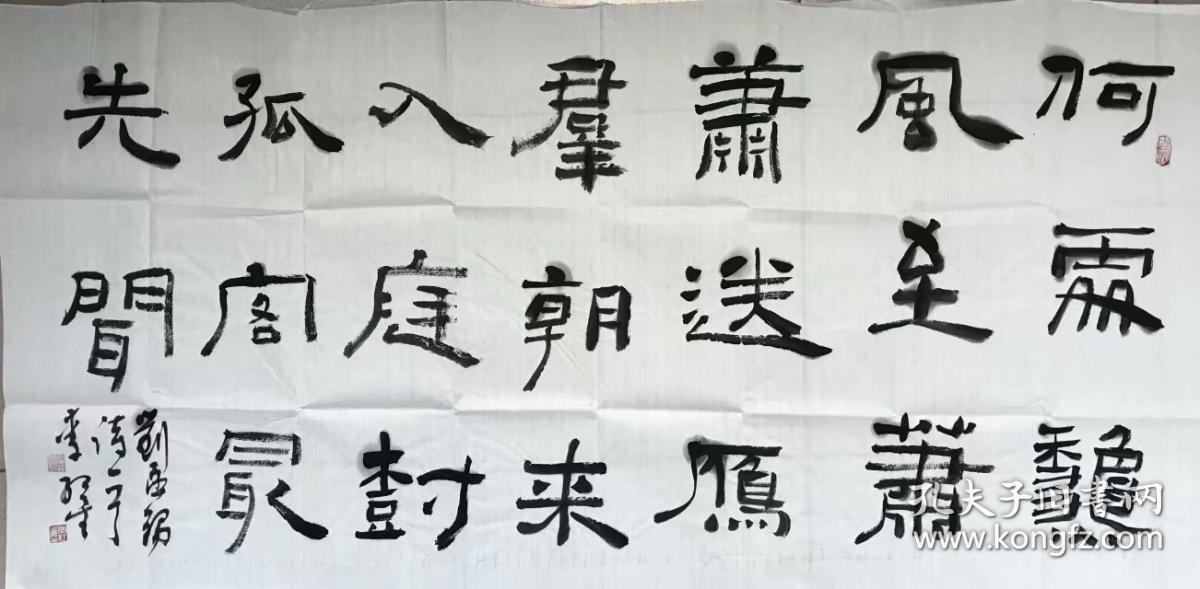 何處龝
風至蕭
蕭送鴈
羣朝来
入庭樹
孤客最
先聞
劉禹錫
詩一首
李
孔夫子旧书网
www.kongfz.com